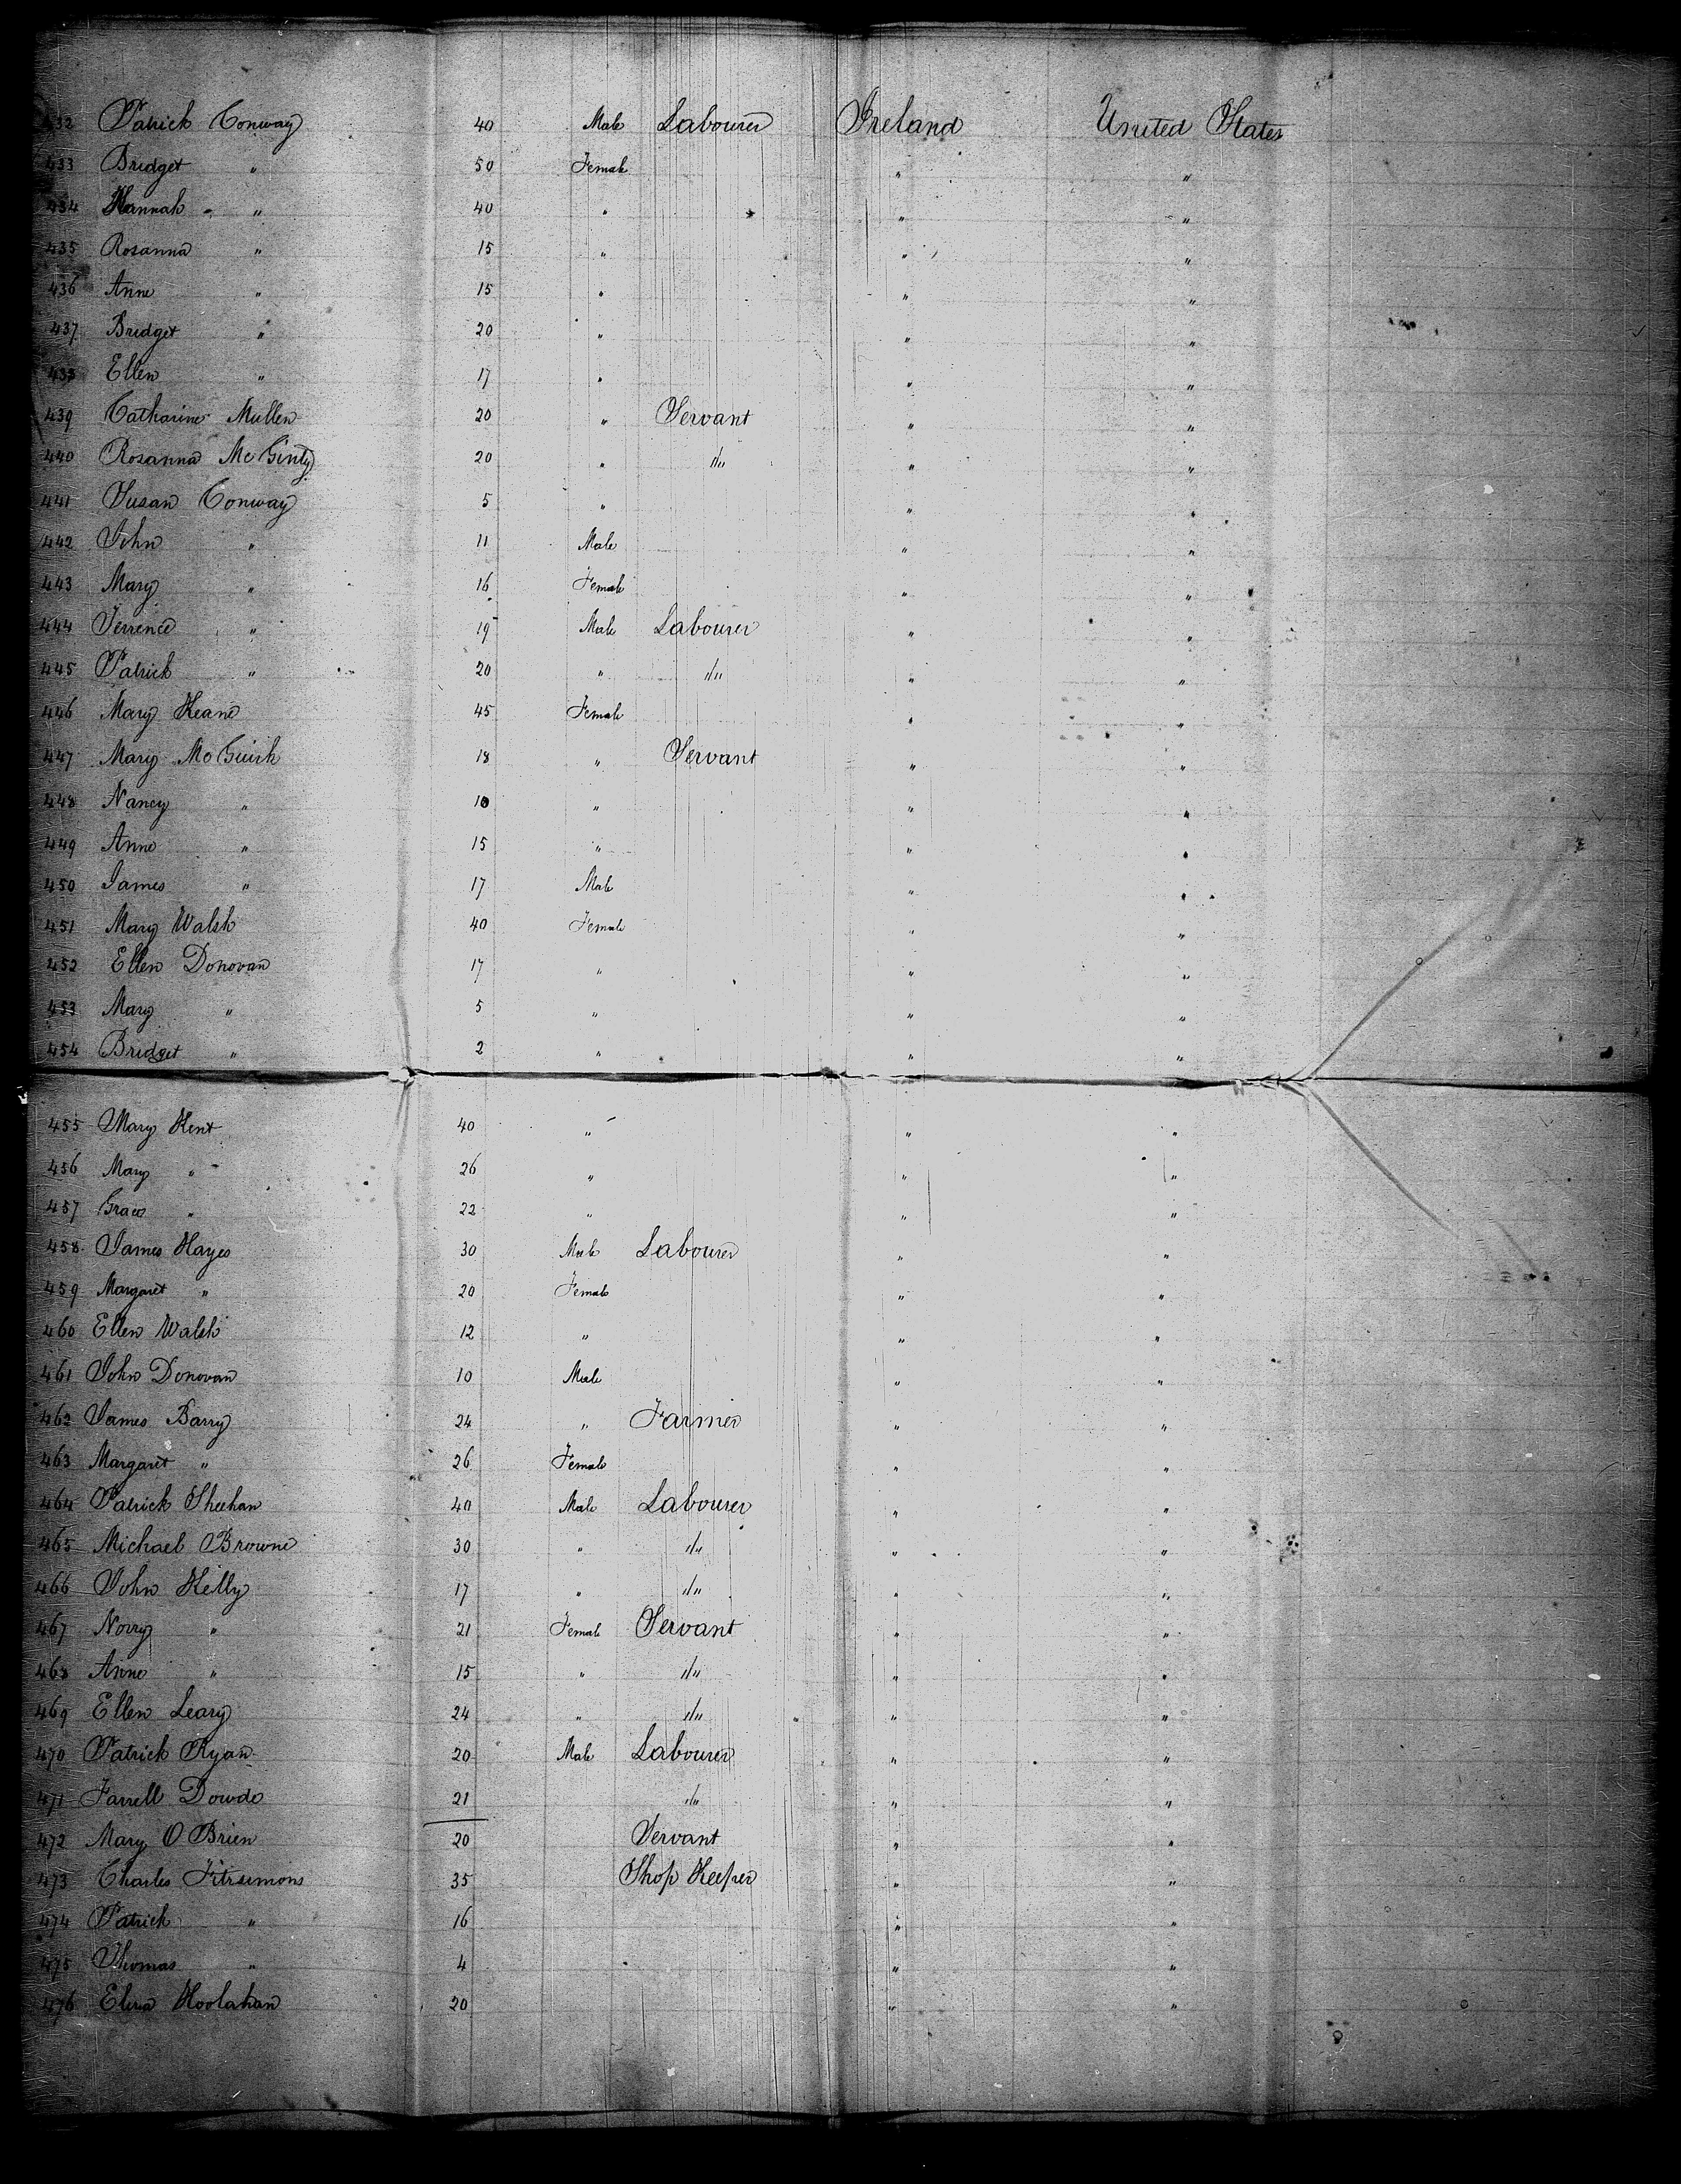 432 Patrick Conway 40 Male Labourer Ireland United States
433 Bridget " 50 Female " "
434 Hannah " 40 " " "
435 Rosanna " 15 " " "
436 Anne " 15 " " "
437 Bridget " 20 " " "
438 Ellen " 17 " " "
439 Catharine Mullen 20 " Servant " "
440 Rosanna McGinty 20 " "/" " "
441 Susan Conway 5 " " "
442 John " 11 Male " "
443 Mary " 16 Female " "
444 Terrence " 19 Male Labourer " "
445 Patrick " 20 " "/" " "
446 Mary Keane 45 Female " "
447 Mary McGuirk 18 " Servant " "
448 Nancy " 10 " " "
449 Anne " 15 " " "
450 James " 17 Male " "
451 Mary Walsh 40 Female " "
452 Ellen Donovan 17 " " "
453 Mary " 5 " " "
454 Bridget " 2 " " "
455 Mary Kent 40 " " "
456 Mary " 26 " " "
457 Grace " 22 " " "
458 James Hayes 30 Male Labourer " "
459 Margaret " 20 Female " "
460 Ellen Walsh 12 " " "
461 John Donovan 10 Male " "
462 James Barry 24 " Farmer " "
463 Margaret " 26 Female " "
464 Patrick Sheehan 40 Male Labourer " "
465 Michael Browne 30 " "/" " "
466 John Kelly 17 " "/" " "
467 Norry " 21 Female Servant " "
468 Anne " 15 " "/" " "
469 Ellen Leary 24 " "/" " "
470 Patrick Ryan 20 Male Labourer " "
471 Farrell Dowde 21 "/" " "
472 Mary O Brien 20 Servant " "
473 Charles Fitzsimons 35 Shop Keeper " "
474 Patrick " 16 " "
475 Thomas " 4 " "
476 Eliza Hoolahan 20 " "